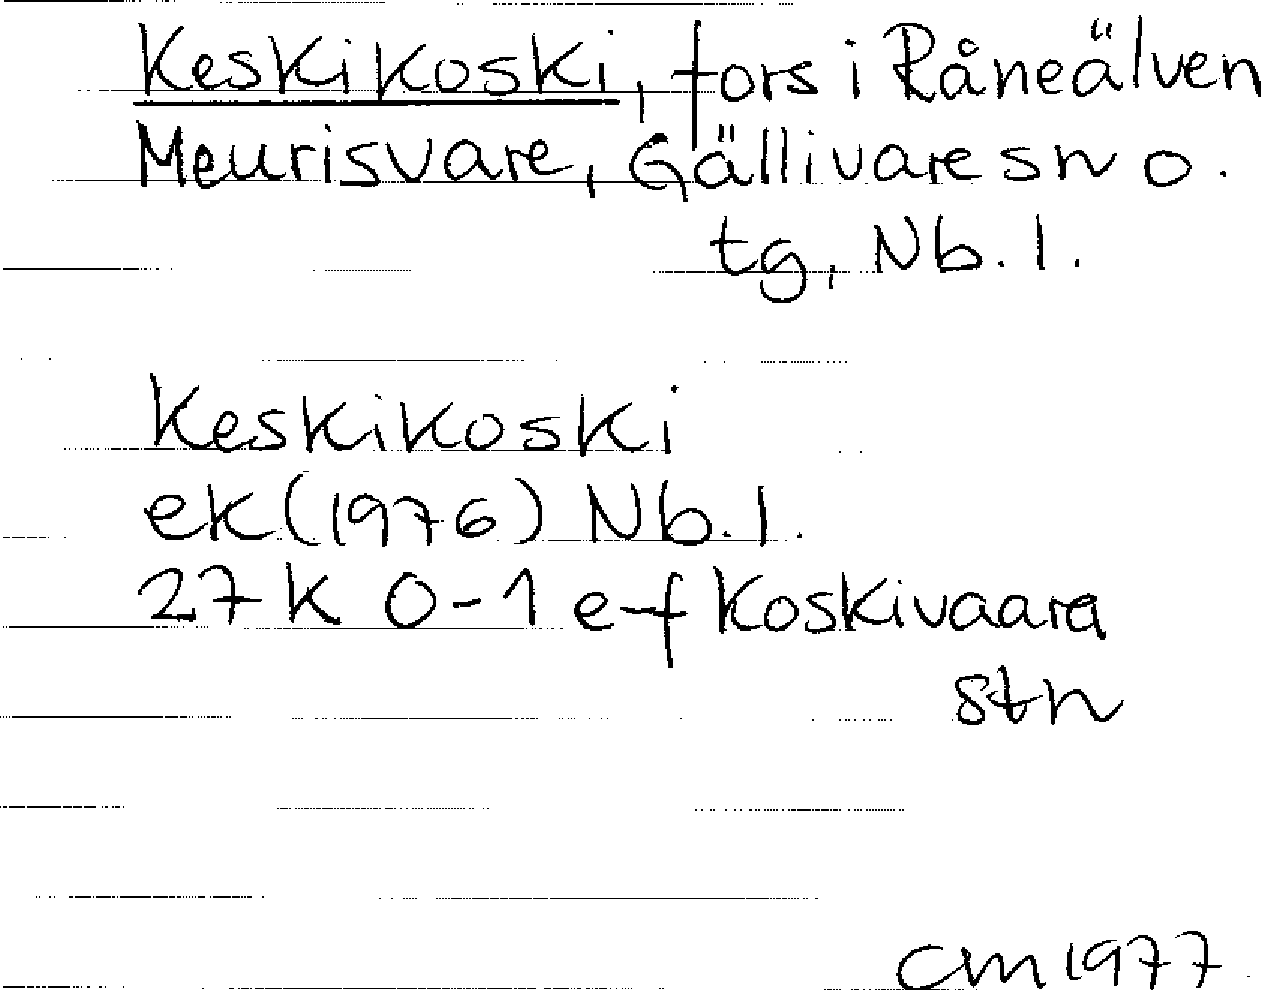 Keskikoski, fors i Råneälven
Meurisvare, Gällivare sn o.
tg, Nb. l.
Keskikoski
ek (1976) Nb. l.
27 K 0-1 e-f Koskivaara
stn
CM 1977